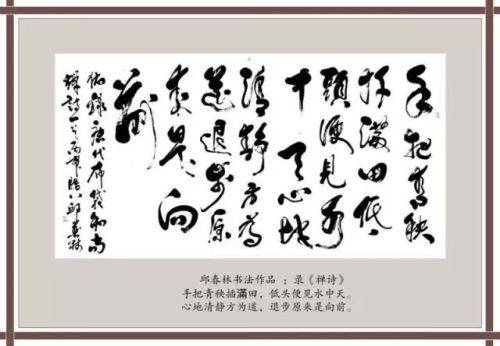 手把青秧
插满田低
頭便見水
中天心地
清静方為
道退步原
來是向
前
録唐代布袋和尚
禅詩一首丙申臘八邱春林
邱春林书法作品 ：录《禅诗》
手把青秧插滿田，低头便见水中天。
心地清静方为道，退步原来是向前。